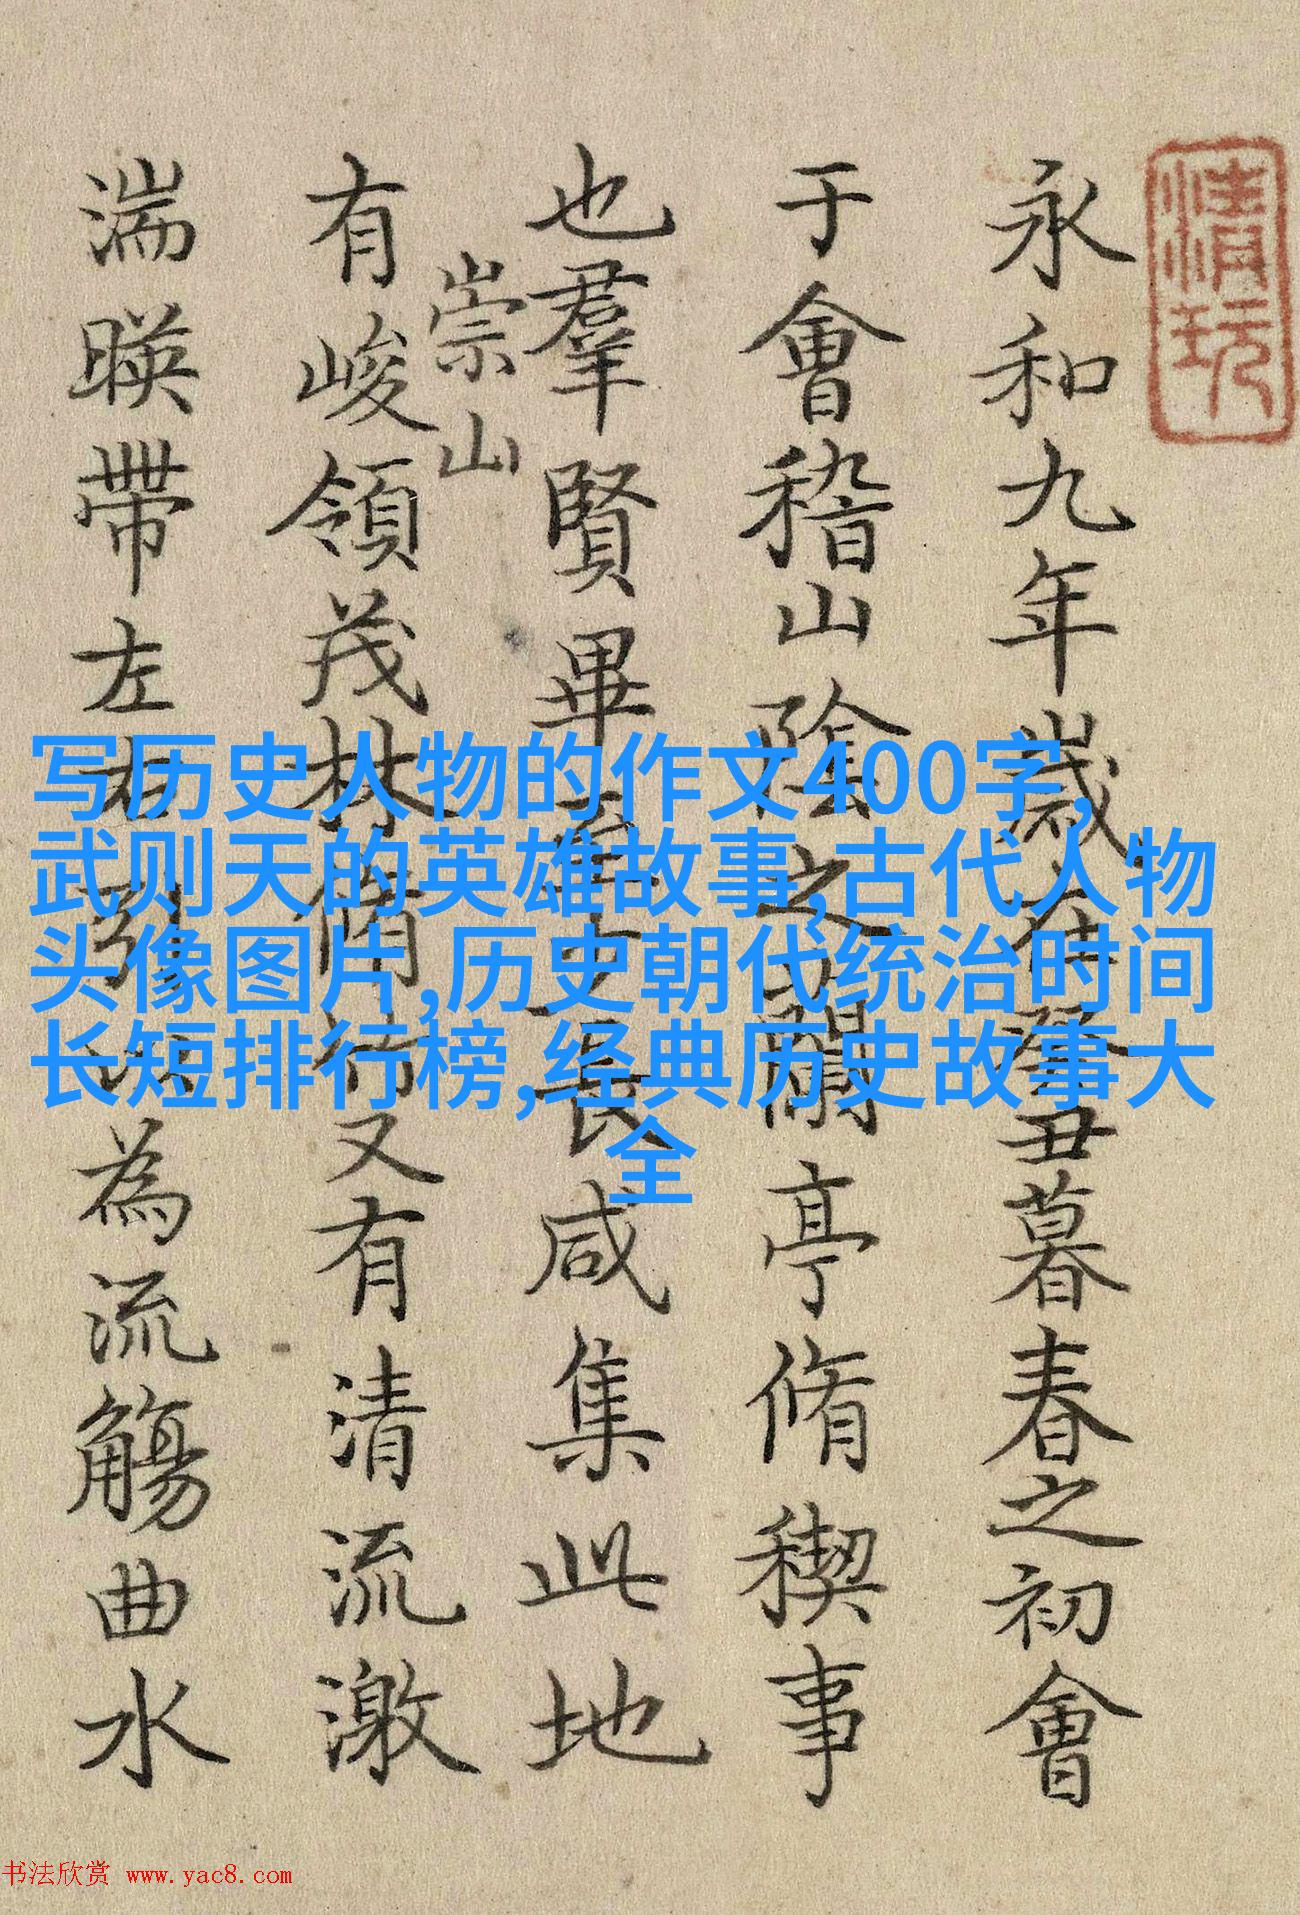 清玩
永和九年歲在癸丑暮春之初會
于會稽山陰之蘭亭脩稧事
也羣賢畢至少長咸集此地
崇山
有峻領茂林脩竹又有清流激
湍暎帶左右引以為流觴曲水
写历史人物的作文400字,
武则天的英雄故事,古代人物
头像图片,历史朝代统治时间
长短排行榜,经典历史故事大
全
书法欣赏 www.yac8.com